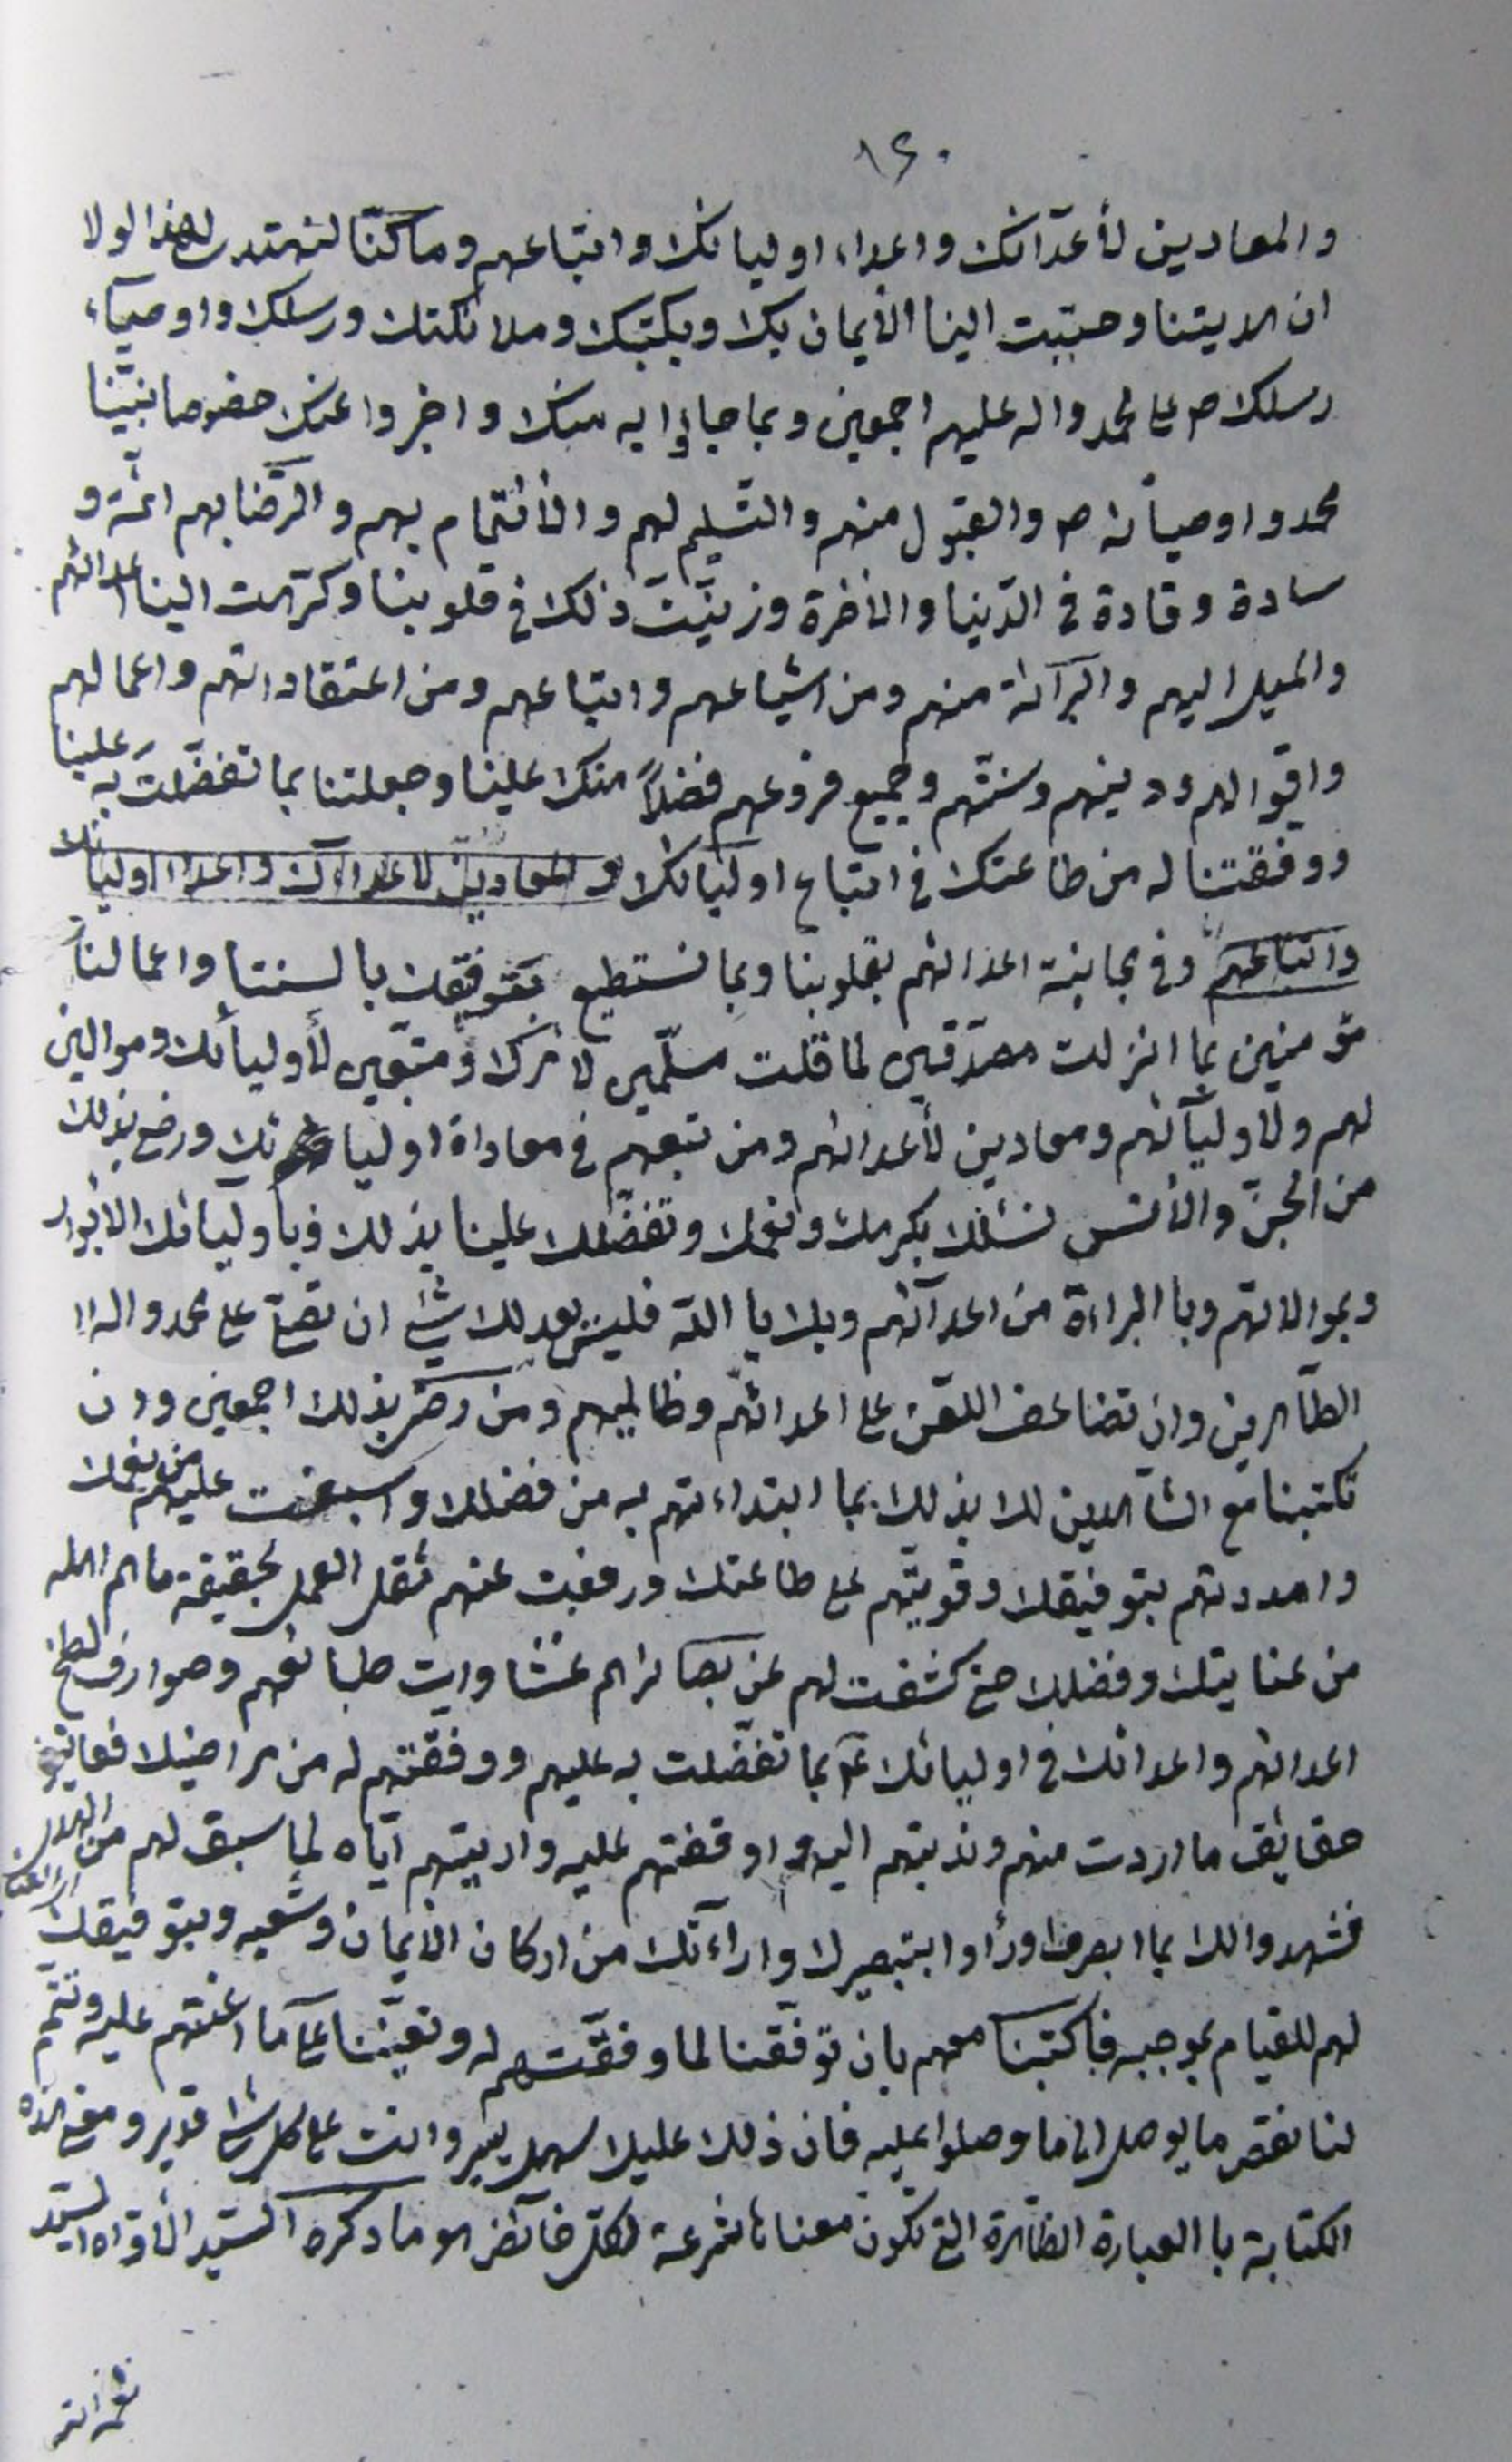 ١٤٠
والمعادين لأعدآئك واعداء اوليائك واتباعهم وما كنّا لنهتدى لهذا لولا
ان هديتنا وحبّبت الينا الأيمان بك وبكتبك وملائكتك ورسلك واوصيآء
رسلك ص على محمد واله عليهم اجمعين وبما جاؤا به منك واخبروا عنك خصوصا نبيّنا
محمد واوصيآئه ص والقبول منهم والتسليم لهم والأئتمام بهم والرّضا بهم ائمّة و
سادة وقادة في الدّنيا والاخرة وزيّنت ذلك في قلوبنا وكرّهت الينا اعدائهم
والميل اليهم والبرآئة منهم ومن اشياعهم واتباعهم ومن اعتقاداتهم واعمالهم
واقوالهم ودينهم وسنّتهم وجميع فروعهم فضلاً منك علينا وجعلتنا بما تفضّلت به علينا
ووفقتنا له من طاعتك في اتباع اوليائك والمعادين لاعدائك واعداء اوليائك
واتباعهم وفي مجانبة اعدائهم بقلوبنا وبما نستطيع بتوفيقك بالسنتنا واعمالنا
مؤمنين بما انزلت مصدّقين لما قلت مسلّمين لأمرك ومتبعين لأوليآئك وموالين
لهم ولأوليآئهم ومعادين لأعدائهم ومن تبعهم في معاداة اوليائك ورضى بذلك
من الجنّ والأنس نسئلك بكرمك ونعمك وتفضّلك علينا بذلك وبأوليائك الابرار
وبموالاتهم وبا البراءة من اعدآئهم وبك يا اللّه فليس بعدلك شئ ان تصلّي على محمد واله
الطّاهرين وان تضاعف اللّعن على اعدائهم وظالميهم ومن رضى بذلك اجمعين وان
تكتبنا مع الشاهدين لك بذلك بما ابتداءتهم به من فضلك واسبغت عليهم من نعمك
وامددتهم بتوفيقك وقويتهم على طاعتك ورفعت عنهم ثقل العمل بحقيقة ما هم اهله
من عنايتك وفضلك حتى كشفت لهم عن بصائرهم غشاوات طبائعهم وصوارف لطخ
اعدائهم واعدائك في اوليائك بما تفضّلت به عليهم ووفقتهم له من مراضيك فعاينوا
حقايق ما اردت منهم وندبتهم اليه واوقفتهم عليه واريتهم ايّاه لما سبق لهم من
فشهدوا لك بما ابصروا ورأوا بتبصيرك واراءتك من اركان الأيمان وشعبه وبتوفيقك
لهم للقيام بموجبه فاكتبنا معهم بان توفّقنا لما وفقّتهم له وتعيننا على ما اعنتهم عليه وتتمّم
لنا نقص ما يوصل الى ما وصلوا عليه فان ذلك عليك سهل يسير وانت على كل شئ قدير ومعنى هذه
الكتابة با العبارة الظاهرة التي تكون معناها شرعة لكلّ خآئض هو ما ذكره السيّد الأوّاه السيّد
نعمة الله